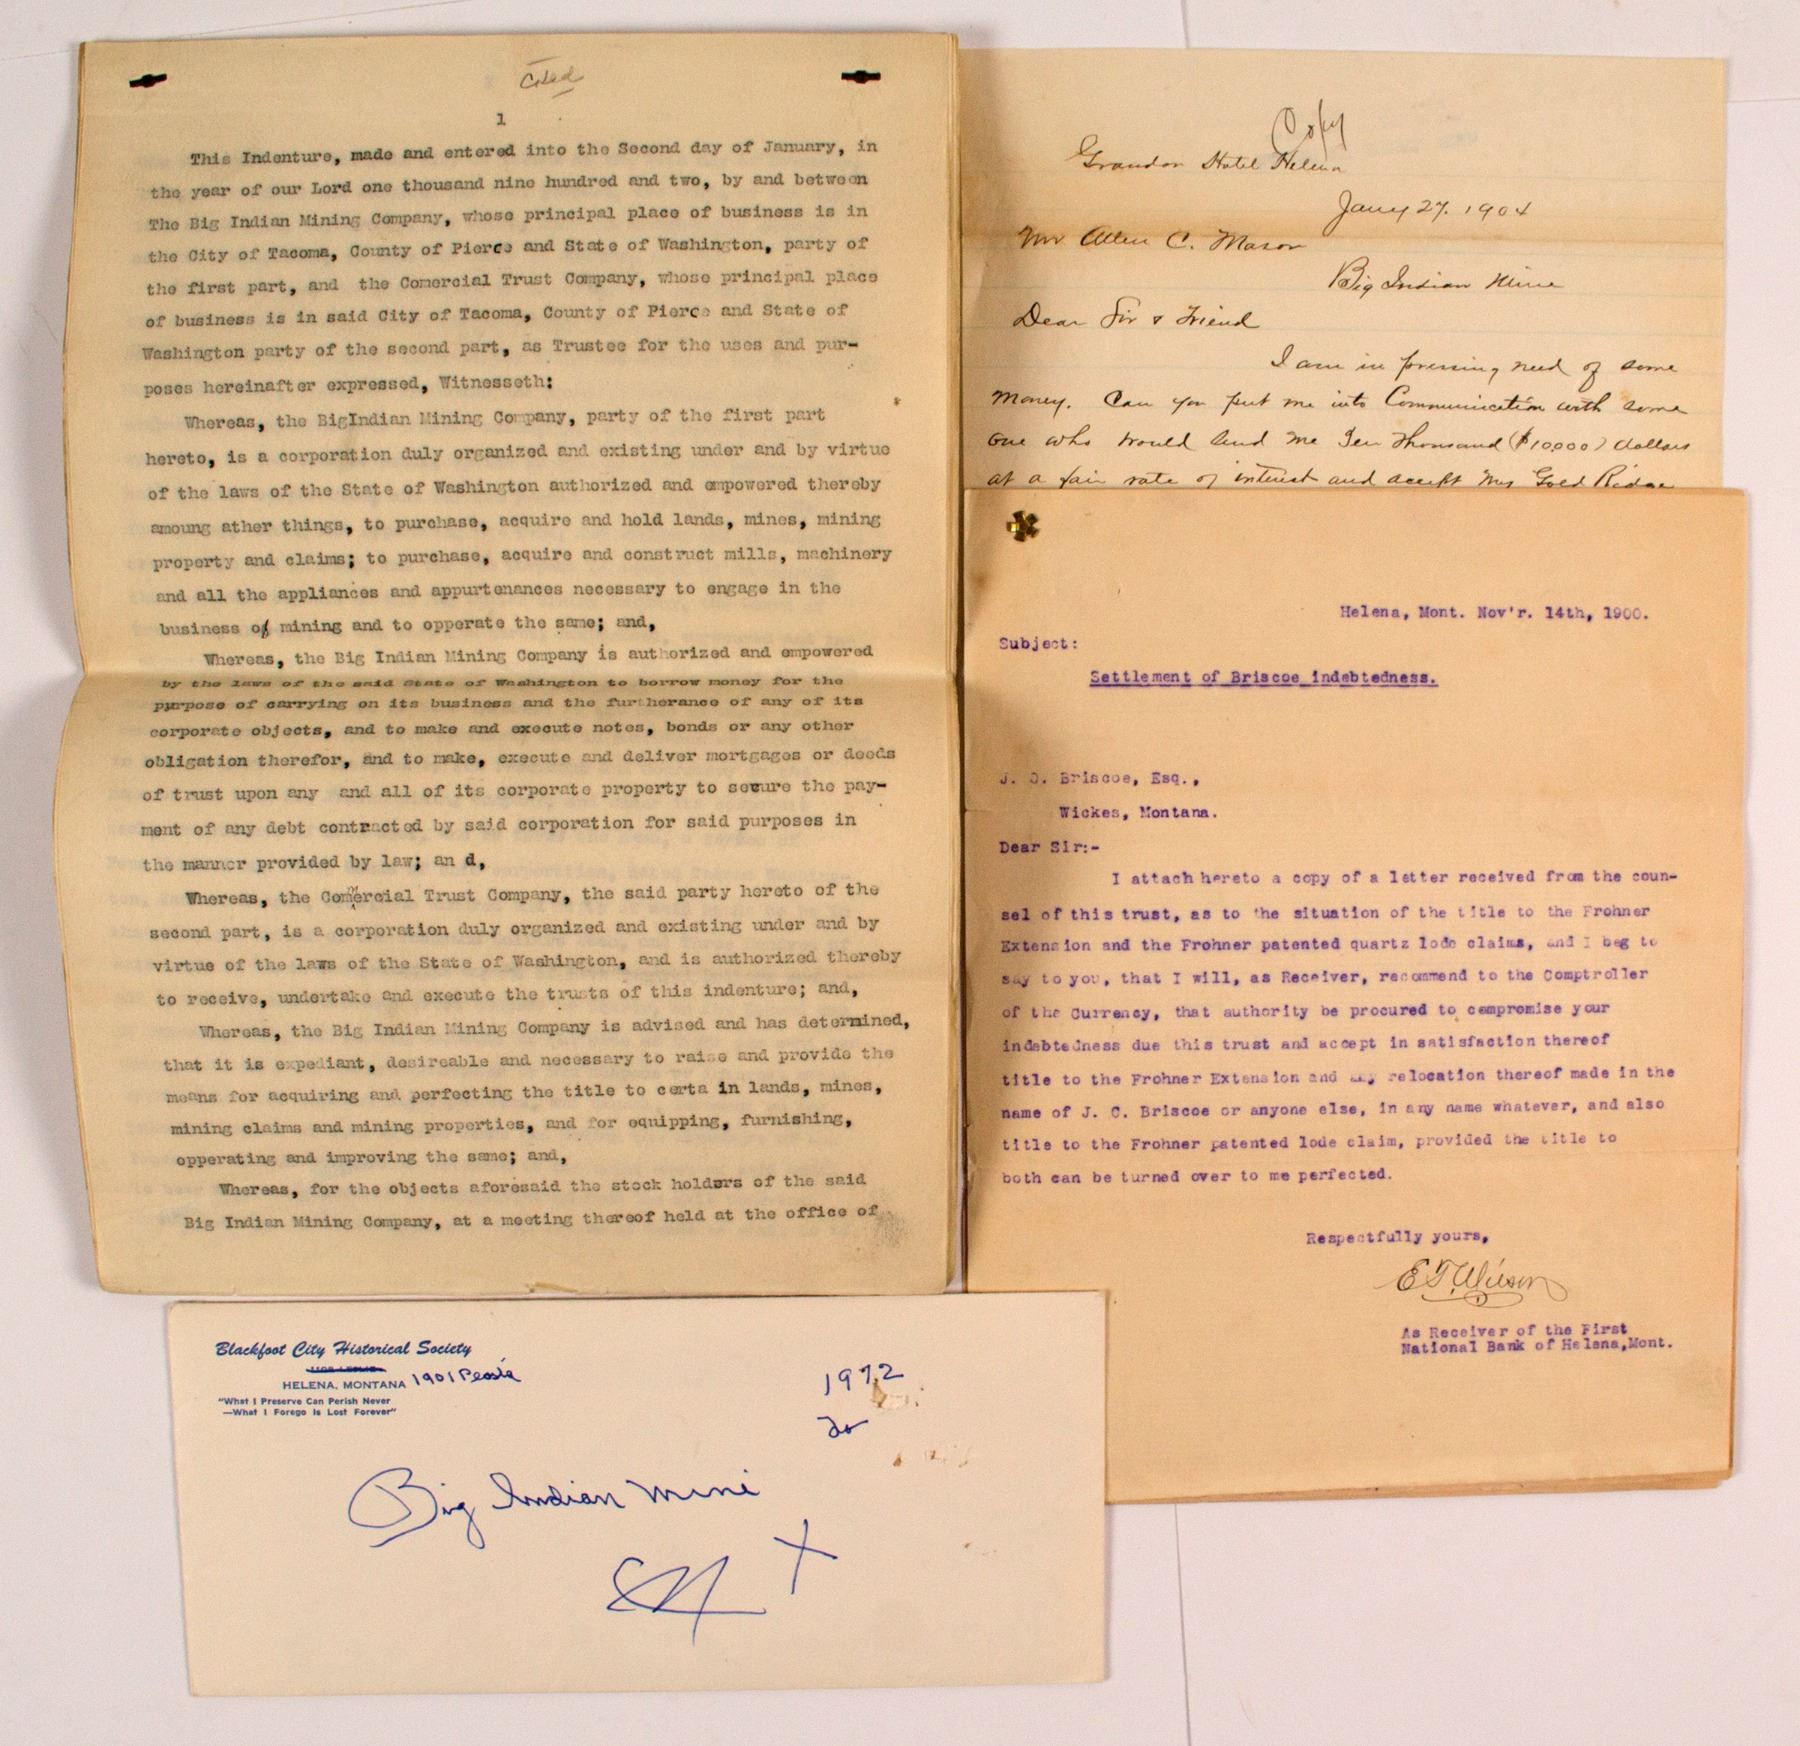 1
This Indenture, made and entered into the Second day of January, in
the year of our Lord one thousand nine hundred and two, by and between
The Big Indian Mining Company, whose principal place of business is in
the City of Tacoma, County of Pierce and State of Washington, party of
the first part, and the Comercial Trust Company, whose principal place
of business is in said City of Tacoma, County of Pierce and State of
Washington party of the second part, as Trustee for the uses and pur-
poses hereinafter expressed, Witnesseth:
Whereas, the BigIndian Mining Company, party of the first part
hereto, is a corporation duly organized and existing under and by virtue
of the laws of the State of Washington authorized and empowered thereby
amoung ather things, to purchase, acquire and hold lands, mines, mining
property and claims; to purchase, acquire and construct mills, machinery
and all the appliances and appurtenances necessary to engage in the
business of mining and to opperate the same; and,
Whereas, the Big Indian Mining Company is authorized and empowered
by the laws of the said State of Washington to borrow money for the
purpose of carrying on its business and the furtherance of any of its
corporate objects, and to make and execute notes, bonds or any other
obligation therefor, and to make, execute and deliver mortgages or deeds
of trust upon any and all of its corporate property to secure the pay-
ment of any debt contracted by said corporation for said purposes in
the manner provided by law; an d,
Whereas, the Commercial Trust Company, the said party hereto of the
second part, is a corporation duly organized and existing under and by
virtue of the laws of the State of Washington, and is authorized thereby
to receive, undertake and execute the trusts of this indenture; and,
Whereas, the Big Indian Mining Company is advised and has determined,
that it is expediant, desireable and necessary to raise and provide the
means for acquiring and perfecting the title to certa in lands, mines,
mining claims and mining properties, and for equipping, furnishing,
opperating and improving the same; and,
Whereas, for the objects aforesaid the stock holders of the said
Big Indian Mining Company, at a meeting thereof held at the office of
Copy
Grandon Hotel Helena
Jany 27. 1904
Mr Allen C. Mason
Big Indian Mine
Dear Sir & Friend
I am in pressing need of some
money. Can you put me into Communication with some
one who would lend me Ten Thousand ($10,000) dollars
at a fair rate of interest and accept my Gold Ridge
Helena, Mont. Nov'r. 14th, 1900.
Subject:
Settlement of Briscoe indebtedness.
J. C. Briscoe, Esq.,
Wickes, Montana.
Dear Sir:-
I attach hereto a copy of a letter received from the coun-
sel of this trust, as to the situation of the title to the Frohner
Extension and the Frohner patented quartz lode claims, and I beg to
say to you, that I will, as Receiver, recommend to the Comptroller
of the Currency, that authority be procured to compromise your
indebtedness due this trust and accept in satisfaction thereof
title to the Frohner Extension and any relocation thereof made in the
name of J. C. Briscoe or anyone else, in any name whatever, and also
title to the Frohner patented lode claim, provided the title to
both can be turned over to me perfected.
Respectfully yours,
E T Wilson
As Receiver of the First
National Bank of Helena, Mont.
Blackfoot City Historical Society
HELENA, MONTANA 1901 Peosta
"What I Preserve Can Perish Never
—What I Forego Is Lost Forever"
1972
Big Indian Mine